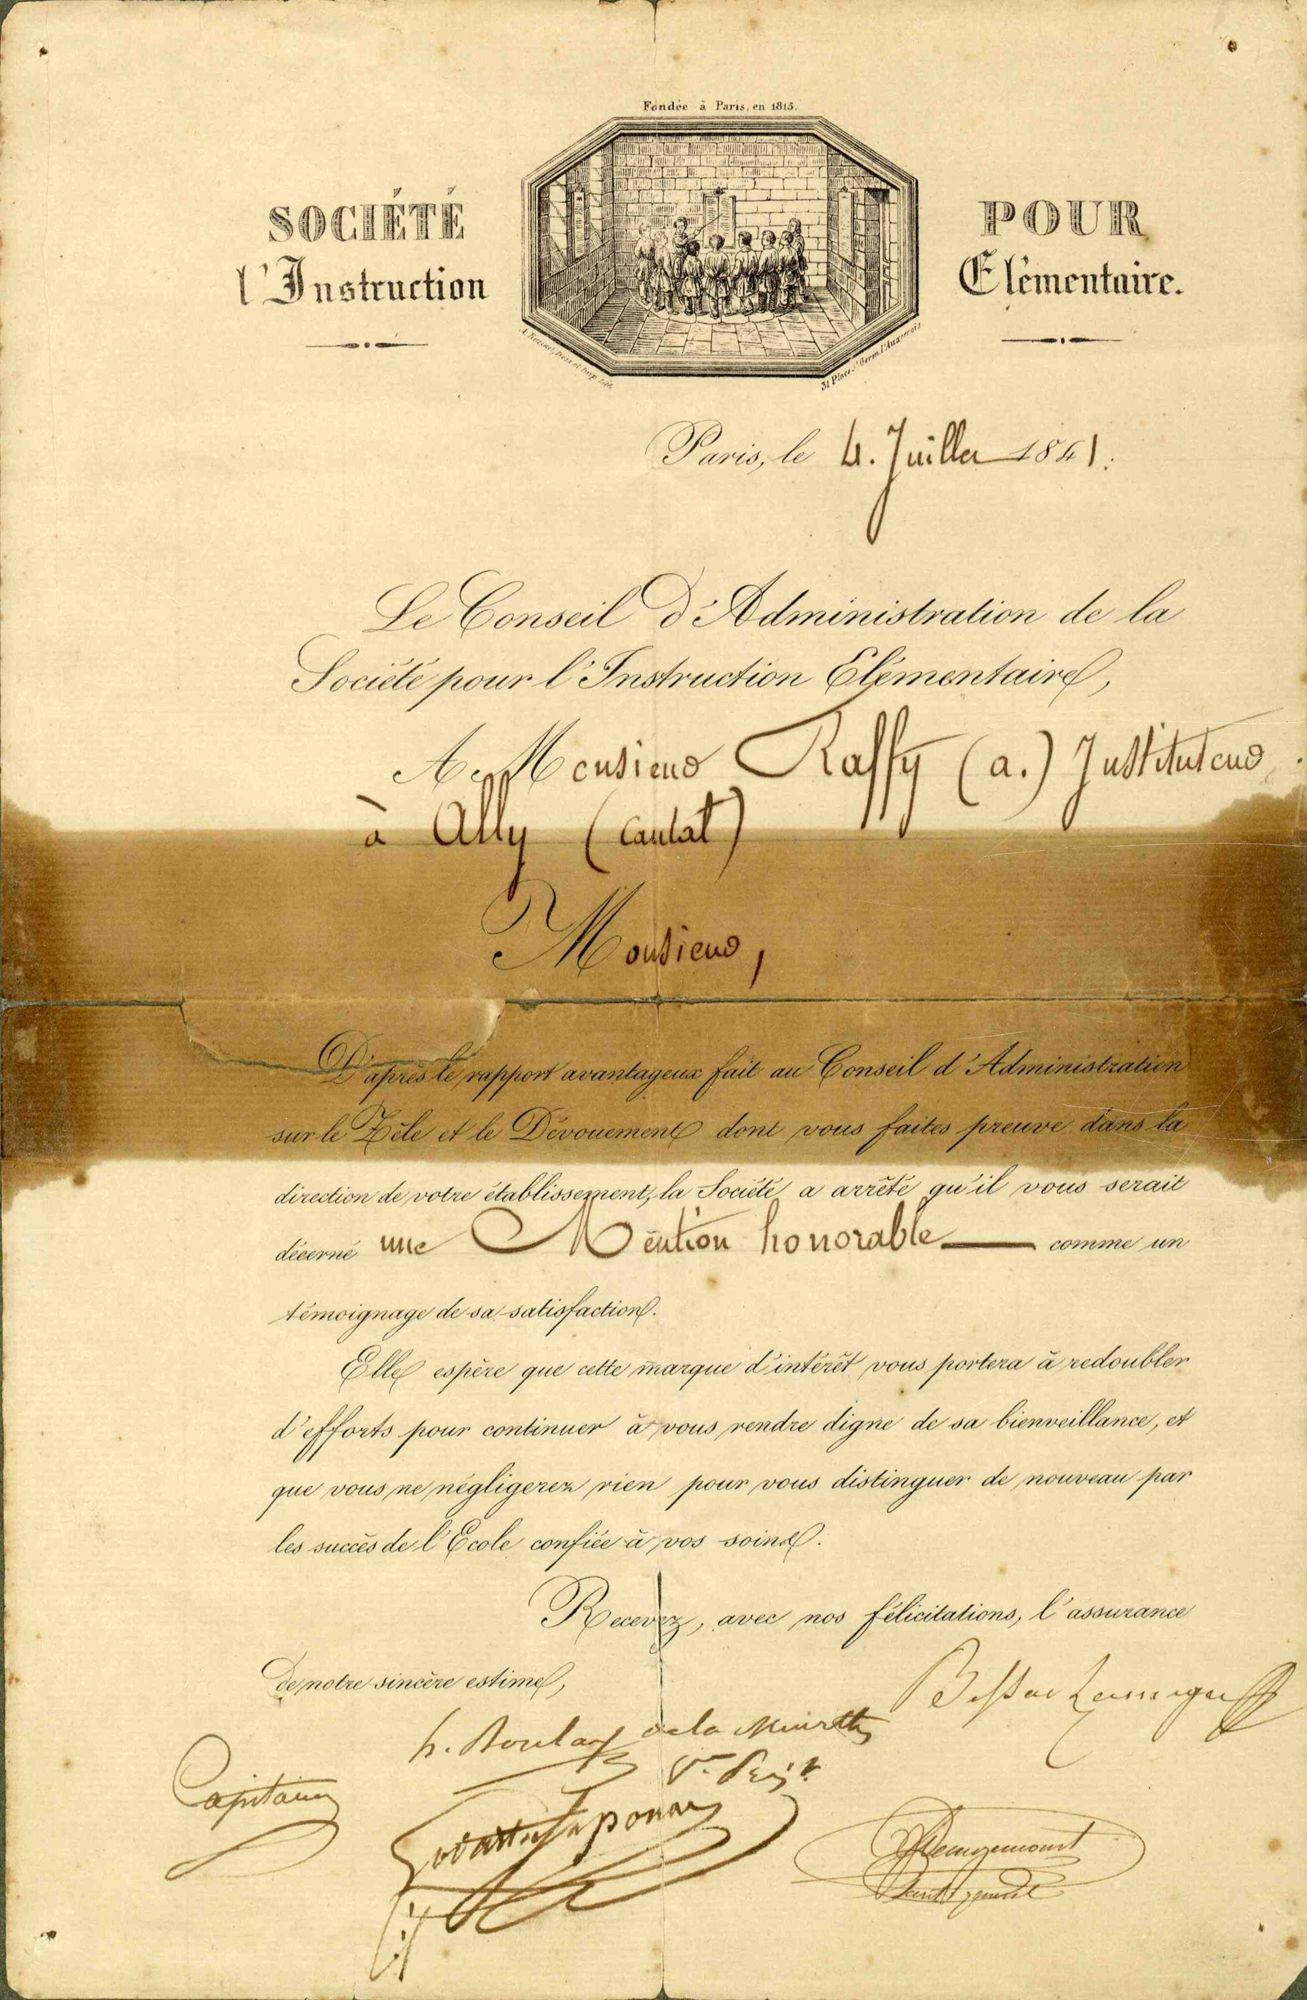 Fondée à Paris, en 1815.
SOCIÉTÉ POUR
l'Instruction Elémentaire.
31 Place St Germ. l'Auxerrois
Paris, le 4. Juillet 1841.
Le Conseil d'Administration de la
Société pour l'Instruction Elémentaire,
A Monsieur Raffy (a.) Instituteur
à Ally (Cantal)
Monsieur,
D'après le rapport avantageux fait au Conseil d'Administration
sur le Zèle et le Dévouement dont vous faites preuve dans la
direction de votre établissement, la Société a arrêté qu'il vous serait
décerné une Mention honorable comme un
témoignage de sa satisfaction.
Elle espère que cette marque d'intérêt vous portera à redoubler
d'efforts pour continuer à vous rendre digne de sa bienveillance, et
que vous ne négligerez rien pour vous distinguer de nouveau par
les succès de l'Ecole confiée à vos soins.
Recevez, avec nos félicitations, l'assurance
de notre sincère estime,
h. Boulay de la Meurthe